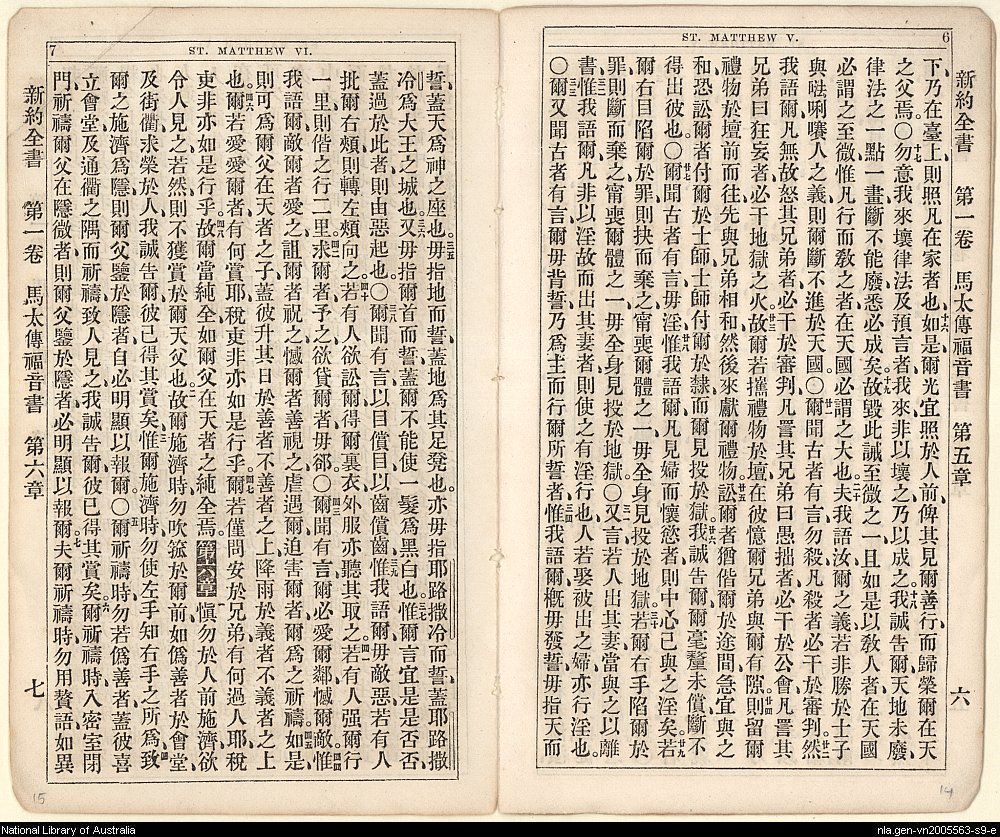 ST. MATTHEW V.
6
新約全書 第一卷 馬太傳福音書 第五章 六
下乃在臺上則照凡在家者也十六如是爾光宜照於人前俾其見爾善行而歸榮爾在天
之父焉○十七勿意我來壞律法及預言者我來非以壞之乃以成之十八我誠告爾天地未廢
律法之一點一畫斷不能廢悉必成矣十九故毀此誡至微之一且如是以敎人者在天國
必謂之至微惟凡行而敎之者在天國必謂之大也二十夫我語汝爾之義若非勝於士子
與𠵽唎㘔人之義則爾斷不進於天國○廿一爾聞古者有言勿殺凡殺者必干於審判廿二然
我語爾凡無故怒其兄弟者必干於審判凡詈其兄弟曰愚拙者必干於公會凡詈其
兄弟曰狂妄者必干地獄之火廿三故爾若攜禮物於壇在彼憶爾兄弟與爾有隙廿四則留爾
禮物於壇前而往先與兄弟相和然後來獻爾禮物廿五訟爾者猶偕爾於途間急宜與之
和恐訟爾者付爾於士師士師付爾於隸而爾見投於獄廿六我誠告爾爾毫釐未償斷不
得出彼也○廿七爾聞古者有言毋淫廿八惟我語爾凡見婦而懷慾者則中心已與之淫矣廿九若
爾右目陷爾於罪則抉而棄之甯喪爾體之一毋全身見投於地獄三十若爾右手陷爾於
罪則斷而棄之甯喪爾體之一毋全身見投於地獄○三一又言若人出其妻當與之以離
書三二惟我語爾凡非以淫故而出其妻者則使之有淫行也人若娶被出之婦亦行淫也
○三三爾又聞古者有言爾毋背誓乃爲主而行爾所誓者三四惟我語爾槪毋發誓毋指天而
7
ST. MATTHEW VI.
誓蓋天爲神之座也三五毋指地而誓蓋地爲其足凳也亦毋指耶路撒冷而誓蓋耶路撒
冷爲大王之城也三六又毋指爾首而誓蓋爾不能使一髮爲黑白也三七惟爾言宜是是否否
蓋過於此者則由惡起也○三八爾聞有言以目償目以齒償齒三九惟我語爾毋敵惡若有人
批爾右頰則轉左頰向之四十若有人欲訟爾得爾裏衣外服亦聽其取之四一若有人强爾行
一里則偕之行二里四二求爾者予之欲貸爾者毋郤○四三爾聞有言爾必愛爾鄰憾爾敵四四惟
我語爾敵爾者愛之詛爾者祝之憾爾者善視之虐遇爾迫害爾者爾爲之祈禱四五如是
則可爲爾父在天者之子蓋彼升其日於善者不善者之上降雨於義者不義者之上
也四六爾若愛愛爾者有何賞耶稅吏非亦如是行乎四七爾若僅問安於兄弟有何過人耶稅
吏非亦如是行乎四八故爾當純全如爾父在天者之純全焉第六章一愼勿於人前施濟欲
令人見之若然則不獲賞於爾天父也二故爾施濟時勿吹箛於爾前如僞善者於會堂
及街衢求榮於人我誠告爾彼已得其賞矣三惟爾施濟時勿使左手知右手之所爲四致
爾之施濟爲隱則爾父鑒於隱者自必明顯以報爾○五爾祈禱時勿若僞善者蓋彼喜
立會堂及通衢之隅而祈禱致人見之我誠告爾彼已得其賞矣六爾祈禱時入密室閉
門祈禱爾父在隱微者則爾父鑒於隱者必明顯以報爾七夫爾祈禱時勿用贅語如異
新約全書 第一卷 馬太傳福音書 第六章 七
15
14
National Library of Australia
nla.gen-vn2005563-s9-e